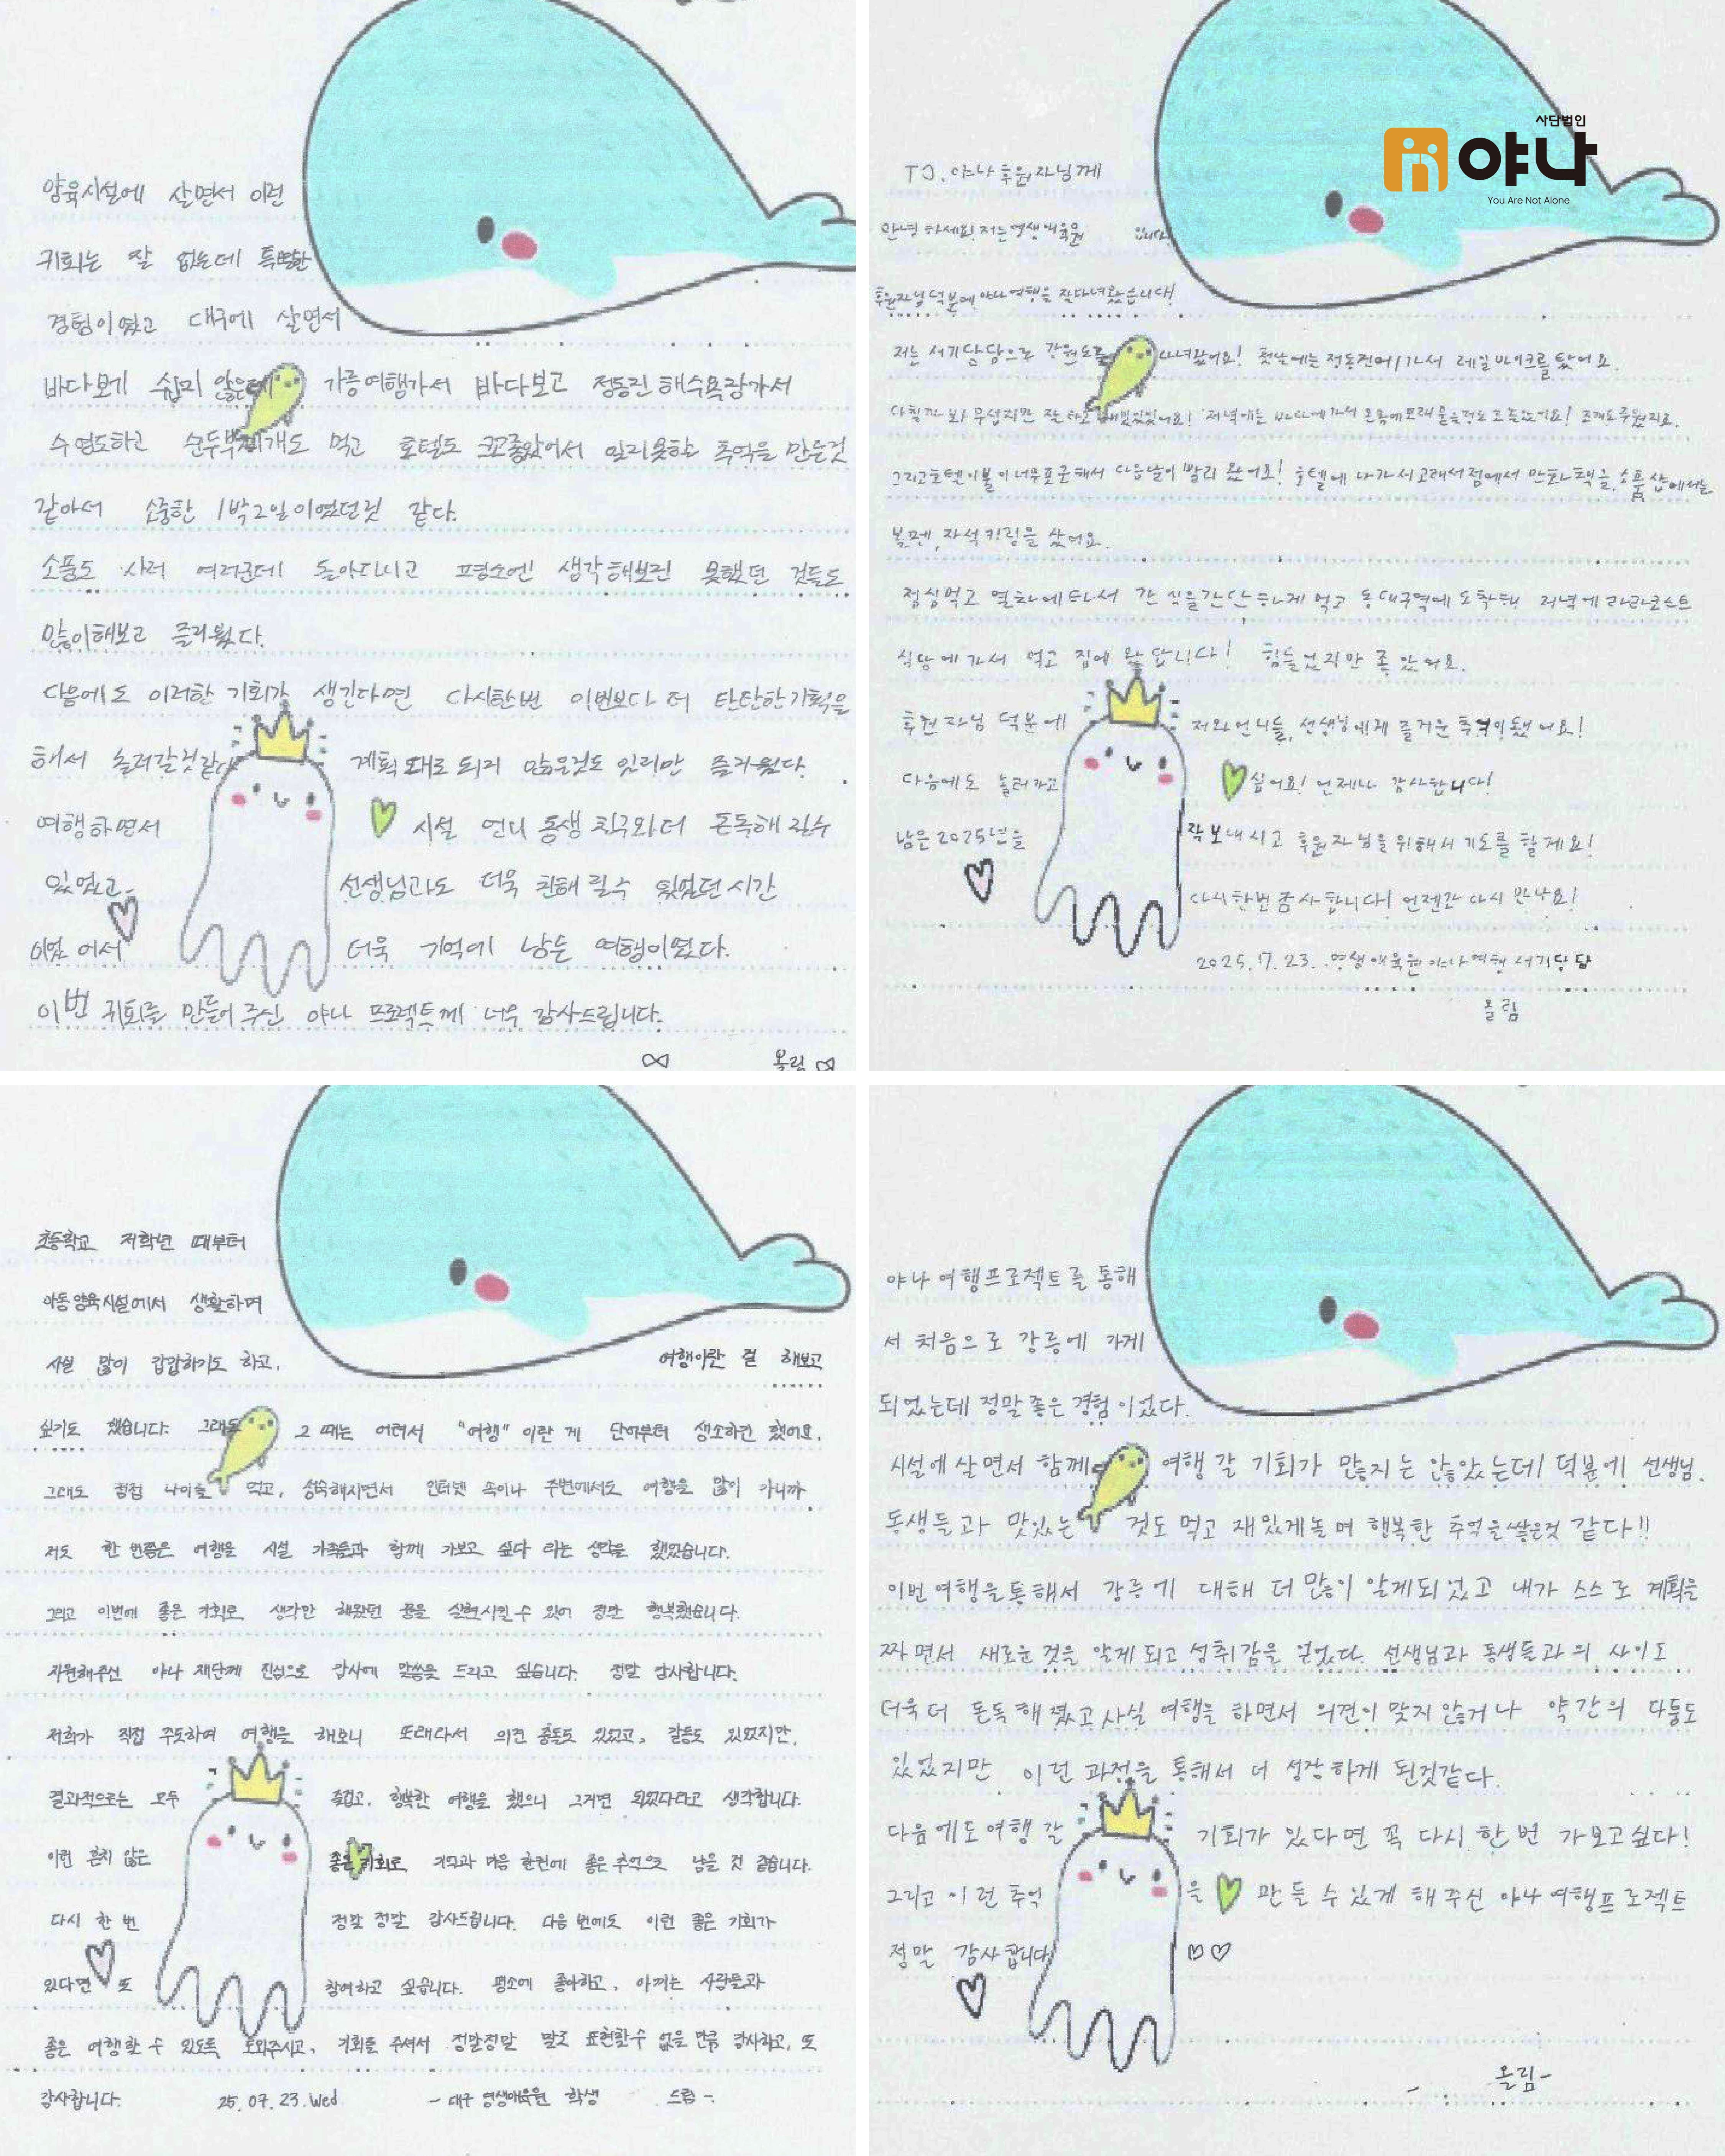 양육시설에 살면서 이런
기회는 잘 없는데 특별한
경험이였고 대구에 살면서
바다보기 쉽지 않은데 가릉여행가서 바다보고 정동진 해수욕장가서
수영도하고 순두부찌개도 먹고 호텔도 크고좋았어서 잊지못할 추억을 만든것
같아서 소중한 1박2일이였던것 같다.
소품도 사러 여러군데 돌아다니고 평소엔 생각해보진 못했던 것들도
많이해보고 즐거웠다.
다음에도 이러한 기회가 생긴다면 다시한번 이번보다 더 탄탄한기획을
해서 놀러갈것같다 계획대로 되지 않은것도 있지만 즐거웠다.
여행하면서 시설 언니 동생 친구와더 돈독해질수
있었고 선생님과도 더욱 친해질수 있었던 시간
이였어서 더욱 기억에 남는 여행이였다.
이번 기회를 만들어주신 야나 프로젝트께 너무 감사드립니다.
올림
사단법인
야나
You Are Not Alone
TO. 야나 후원자님께
안녕하세요! 저는 영생애육원 입니다!
후원자님 덕분에 야나여행을 잘다녀왔습니다!
저는 서기담당으로 강원도를 다녀왔어요! 첫날에는 정동진에 가서 레일바이크를 탔어요.
무섭지만 잘타고 재밌었어요! 저녁에는 바다에가서 온몸에모래 묻을정도로놀았어요! 조개도주웠지요.
그리고호텔이불이너무포근해서 다음날이 빨리 왔어요! 호텔에 나가서고래서점에서 만화책을, 소품샵에서는
볼펜, 자석키링을 샀어요.
점심먹고 열차에타서 간식을간단하게 먹고 동대구역에 도착해 저녁에라라코스트
식당에가서 먹고 집에 왔답니다! 힘들었지만 좋았어요.
후원자님 덕분에 저와언니들, 선생님에게 즐거운 추억이됐어요!
다음에도 놀러가고 싶어요! 언제나 감사합니다!
남은2025년을 잘보내시고 후원자님을위해서 기도를 할게요!
다시한번감사합니다! 언젠간 다시 만나요!
2025. 7. 23. 영생애육원 야나여행 서기담당
올림
초등학교 저학년 때부터
아동양육시설에서 생활하며
사실 많이 갑갑하기도 하고, 여행이란 걸 해보고
싶기도 했습니다. 그래도 그 때는 어려서 "여행" 이란 게 단어부터 생소하긴 했어요.
그래도 점점 나이를 먹고, 성숙해지면서 인터넷 속이나 주변에서도 여행을 많이 가니까
저도 한 번쯤은 여행을 시설 가족들과 함께 가보고 싶다 라는 생각을 했었습니다.
그리고 이번에 좋은 기회로 생각만 해왔던 꿈을 실현시킬수 있어 정말 행복했습니다.
지원해주신 야나 재단께 진심으로 감사에 말씀을 드리고 싶습니다. 정말 감사합니다.
저희가 직접 주도하며 여행을 해보니 또래라서 의견 충돌도 있었고, 갈등도 있었지만,
결과적으로는 모두 즐겁고, 행복한 여행을 했으니 그거면 되었다라고 생각합니다.
이런 흔치 않은 좋은 기회로 기억과 마음 한켠에 좋은 추억으로 남을 것 같습니다.
다시 한 번 정말 정말 감사드립니다. 다음 번에도 이런 좋은 기회가
있다면 또 참여하고 싶습니다. 평소에 좋아하고, 아끼는 사람들과
좋은 여행할 수 있도록 도와주시고, 기회를 주셔서 정말정말 말로 표현할수 없을 만큼 감사하고, 또
감사합니다. 25. 07. 23. Wed - 대구 영생애육원 학생 드림 -
야나 여행프로젝트를 통해
서 처음으로 강릉에 가게
되었는데 정말좋은 경험이었다.
시설에살면서 함께 여행 갈 기회가 많지는 않았는데 덕분에 선생님,
동생들과 맛있는 것도 먹고 재밌게놀며 행복한 추억을쌓은것 같다!!
이번여행을통해서 강릉에 대해 더 많이 알게되었고 내가 스스로 계획을
짜면서 새로운 것을 알게 되고 성취감을 얻었다. 선생님과 동생들과의 사이도
더욱더 돈독해졌고 사실 여행을 하면서 의견이 맞지 않거나 약간의 다툼도
있었지만 이런 과정을 통해서 더 성장하게 된것같다.
다음에도여행 갈 기회가 있다면 꼭 다시 한 번 가보고싶다!
그리고 이런 추억을 만들 수 있게 해주신 야나 여행프로젝트
정말 감사합니다
올림-